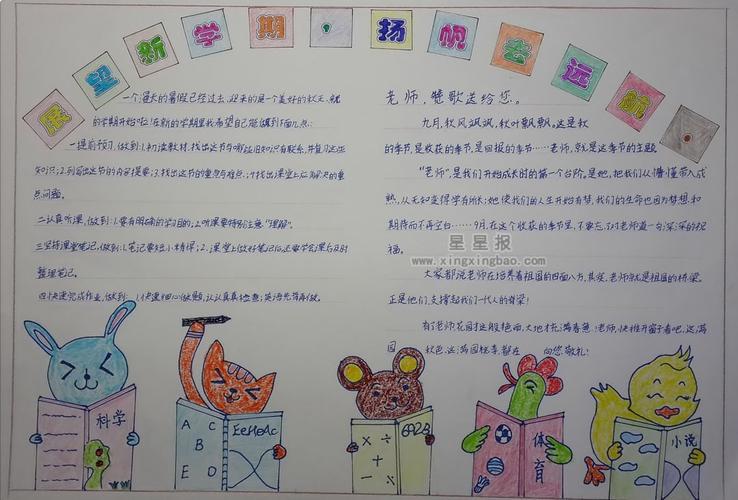 展望新学期·扬帆去远航.
一个漫长的暑假已经过去,迎来的是一个美好的秋天,新
的学期开始啦!在新的学期里我希望自己能做到下面几点:
一提前预习,做到:1.初读教材,找出这节与哪些旧知识有联系,并复习这些
知识;2.列写出这节的内容提要;3.找出这节的重点与难点;4.找出课堂上应解决的重
点问题。
二认真听课,做到:1.要有明确的学习目的;2.听课要特别注意"理解"。
三坚持课堂笔记,做到:1.笔记要短小精悍;2.课堂上做好笔记后还要学会课后及时
整理笔记。
四快速完成作业,做到:1.快速细心做题,认认真真检查;英语先背再做。
老师,赞歌送给您。
九月,秋风飒飒,秋叶飘飘。这是秋
的季节,是收获的季节,是回报的季节……老师,就是这季节的主题
"老师",是我们开始成长时的第一个台阶。是她,把我们从懵懂带入成
熟,从无知变得学有所长;她使我们的人生开始有梦,我们的生命也因为梦想和
期待而不再空白……9月,在这个收获的季节里,不要忘了对老师道一句:深深的祝
福。
大家都说老师在培养着祖国的四面八方,其实,老师就是祖国的桥梁。
正是他们,支撑起我们一代人的脊梁!
有了老师花园才这般艳丽,大地才充满春意!老师,快推开窗子看吧,这满
园 秋色,这满园桃李,都在 向您敬礼!
星星报
www.xingxingbao.com
科学
A C
B
E D
EeHeAc
× ÷
+
−
体育
小说